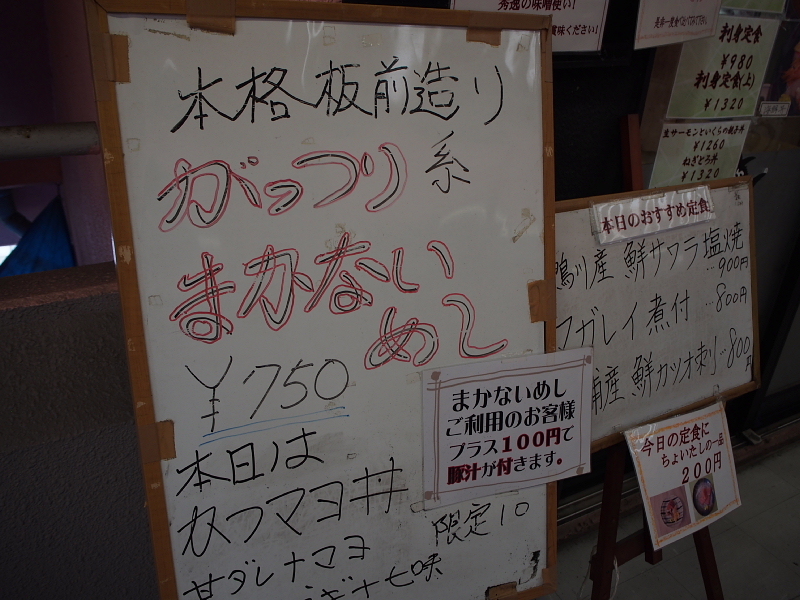 本格板前造り
がっつり系
まかない
めし
¥750
本日は
かつマヨ丼
甘ダレ+マヨ
+七味
限定10
まかないめし
ご利用のお客様
プラス100円で
豚汁が付きます。
秀逸の味噌使い!
賞味ください!
刺身定食
¥980
刺身定食(上)
¥1320
生サーモンといくらの親子丼
¥1260
ねぎとろ丼
¥1320
本日のおすすめ定食
鴨川産 鮮サワラ塩焼
…900円
マガレイ煮付…800円
産 鮮カツオ刺…800円
今日の定食に
ちょいたしの一品
200円